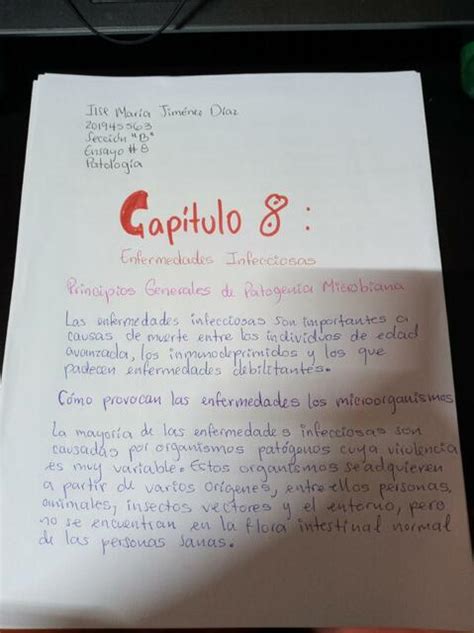 Ilse María Jiménez Díaz
201945563
Sección "B"
Ensayo #8
Patología
Capítulo 8 :
Enfermedades Infecciosas
Principios Generales de Patogenia Microbiana
Las enfermedades infecciosas son importantes a
causas de muerte entre los individuos de edad
avanzada, los inmunodeprimidos y los que
padecen enfermedades debilitantes.
Cómo provocan las enfermedades los microorganismos
La mayoría de las enfermedades infecciosas son
causadas por organismos patógenos cuya virulencia
es muy variable. Estos organismos se adquieren
a partir de varios orígenes, entre ellos personas,
animales, insectos vectores y el entorno, pero
no se encuentran en la flora intestinal normal
de las personas sanas.